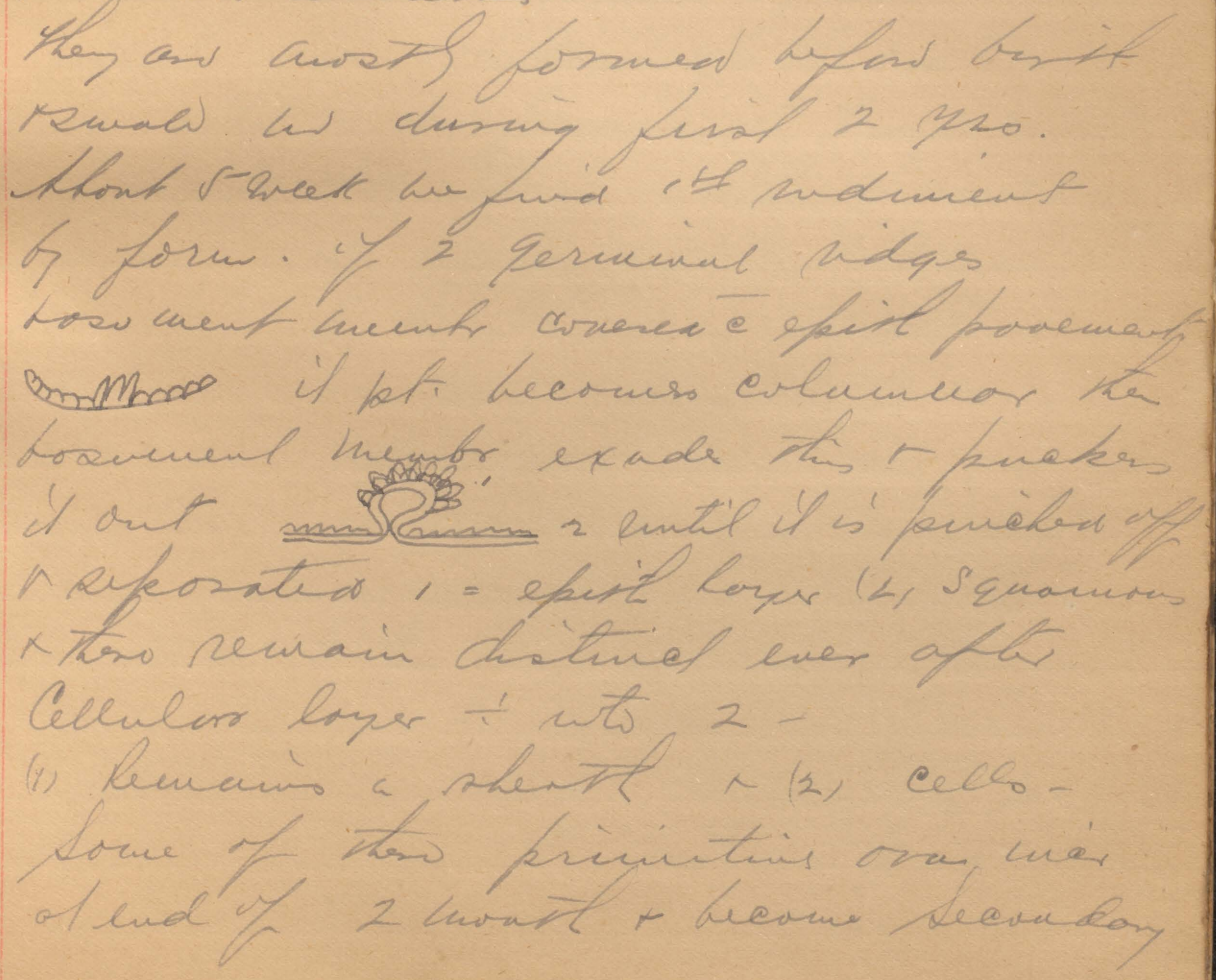 they are mostly formed before birth
& during first 2 yrs.
About 5 week we find 1st rudiment
by form. of 2 germinal ridges
basement membr covered c̄ epith pavement
it pt. becomes columnar the
basement membr exude this & puckers
it out 2 until it is pinched off
& separated 1 = epith layer (2) Squamous
& these remain distinct ever after
Cellular layer ÷ into 2 -
(1) Remains a sheath & (2) cells -
Some of these primitive ova incr
at end of 2 month & become Secondary